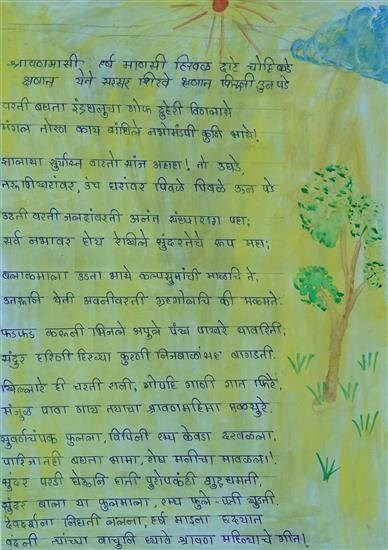 श्रावणमासी हर्ष मानसी हिरवळ दाटे चोहिकडे
क्षणात येते सरसर शिरवे क्षणात फिरूनी ऊन पडे
वरती बघता इंद्रधनुचा गोफ दुहेरी विणलासे
मंगल तोरण काय बांधिले नभोमंडपी कुणि भासे!
झालासा सूर्यास्त वाटतो सांज अहाहा! तो उघडे
तरुशिखरांवर, उंच घरांवर पिवळे पिवळे ऊन पडे
उठती वरती जलदांवरती अनंत संध्याराग पहा;
सर्व नभावर होय रेखिले सुंदरतेचे रूप महा;
बलाकमाला उडता भासे कल्पसुमांची माळचि ते,
उतरूनि येती अवनीवरती ग्रहगोलचि की एकमते.
फडफड करूनी भिजले अपुले पंख पाखरे सावरिती;
सुंदर हरिणी हिरव्या कुरणी निजबाळांसह बागडती.
खिल्लारे ही चरती रानी, गोपहि गाणी गात फिरे,
मंजुळ पावा गाय तयाचा श्रावणमहिमा एकसुरे.
सुवर्णचंपक फुलला, विपिनी रम्य केवडा दरवळला,
पारिजातही बघता भामा, रोष मनीचा मावळला!.
सुंदर परडी घेऊनि हाती पुरोपकंठी शुद्धमती,
सुंदर बाला या फुलमाला, रम्य फुले-पत्री खुडती.
देवदर्शना निघती ललना, हर्ष माइना हृदयात
वदनी त्यांच्या वाचुनि घ्यावे श्रावण महिन्याचे गीत!